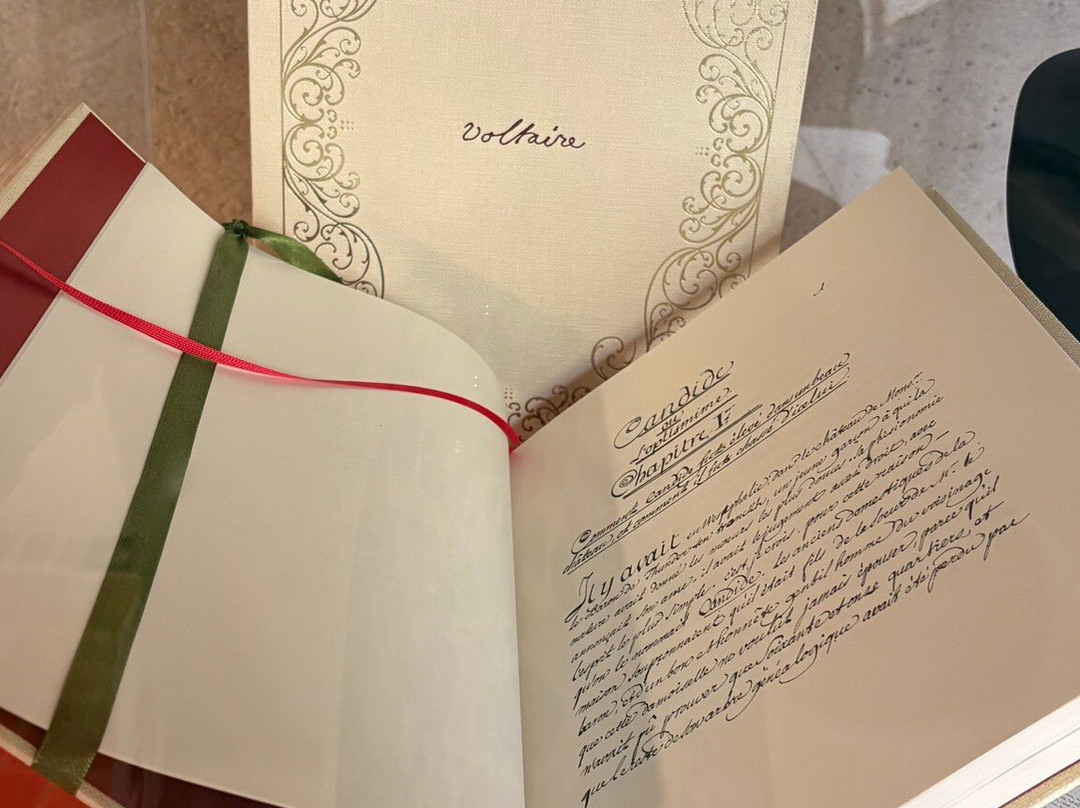 Voltaire
1
Candide
ou
l'optimisme
Chapitre 1er
Comment Candide fut élevé dans un beau
château, et comment il fut chassé d'icelui
Il y avait en Westphalie, dans le château de Monsr.
le Baron de Thunder-ten-tronckh, un jeune garçon à qui la
nature avait donné les moeurs les plus douces. sa phisionomie
annonçait son ame. il avait le jugement assez droit, avec
l'esprit le plus simple. c'est, je crois, pour cette raison
qu'on le nommait Candide. Les anciens domestiques de la
maison soupçonnaient qu'il était fils de la soeur de Mr. le
baron, et d'un bon et honnête gentilhomme du voisinage
que cette damoiselle ne voulut jamais épouser, parce qu'il
n'avait pû prouver que soixante et onze quartiers et
que le reste de son arbre généalogique avait été perdu par